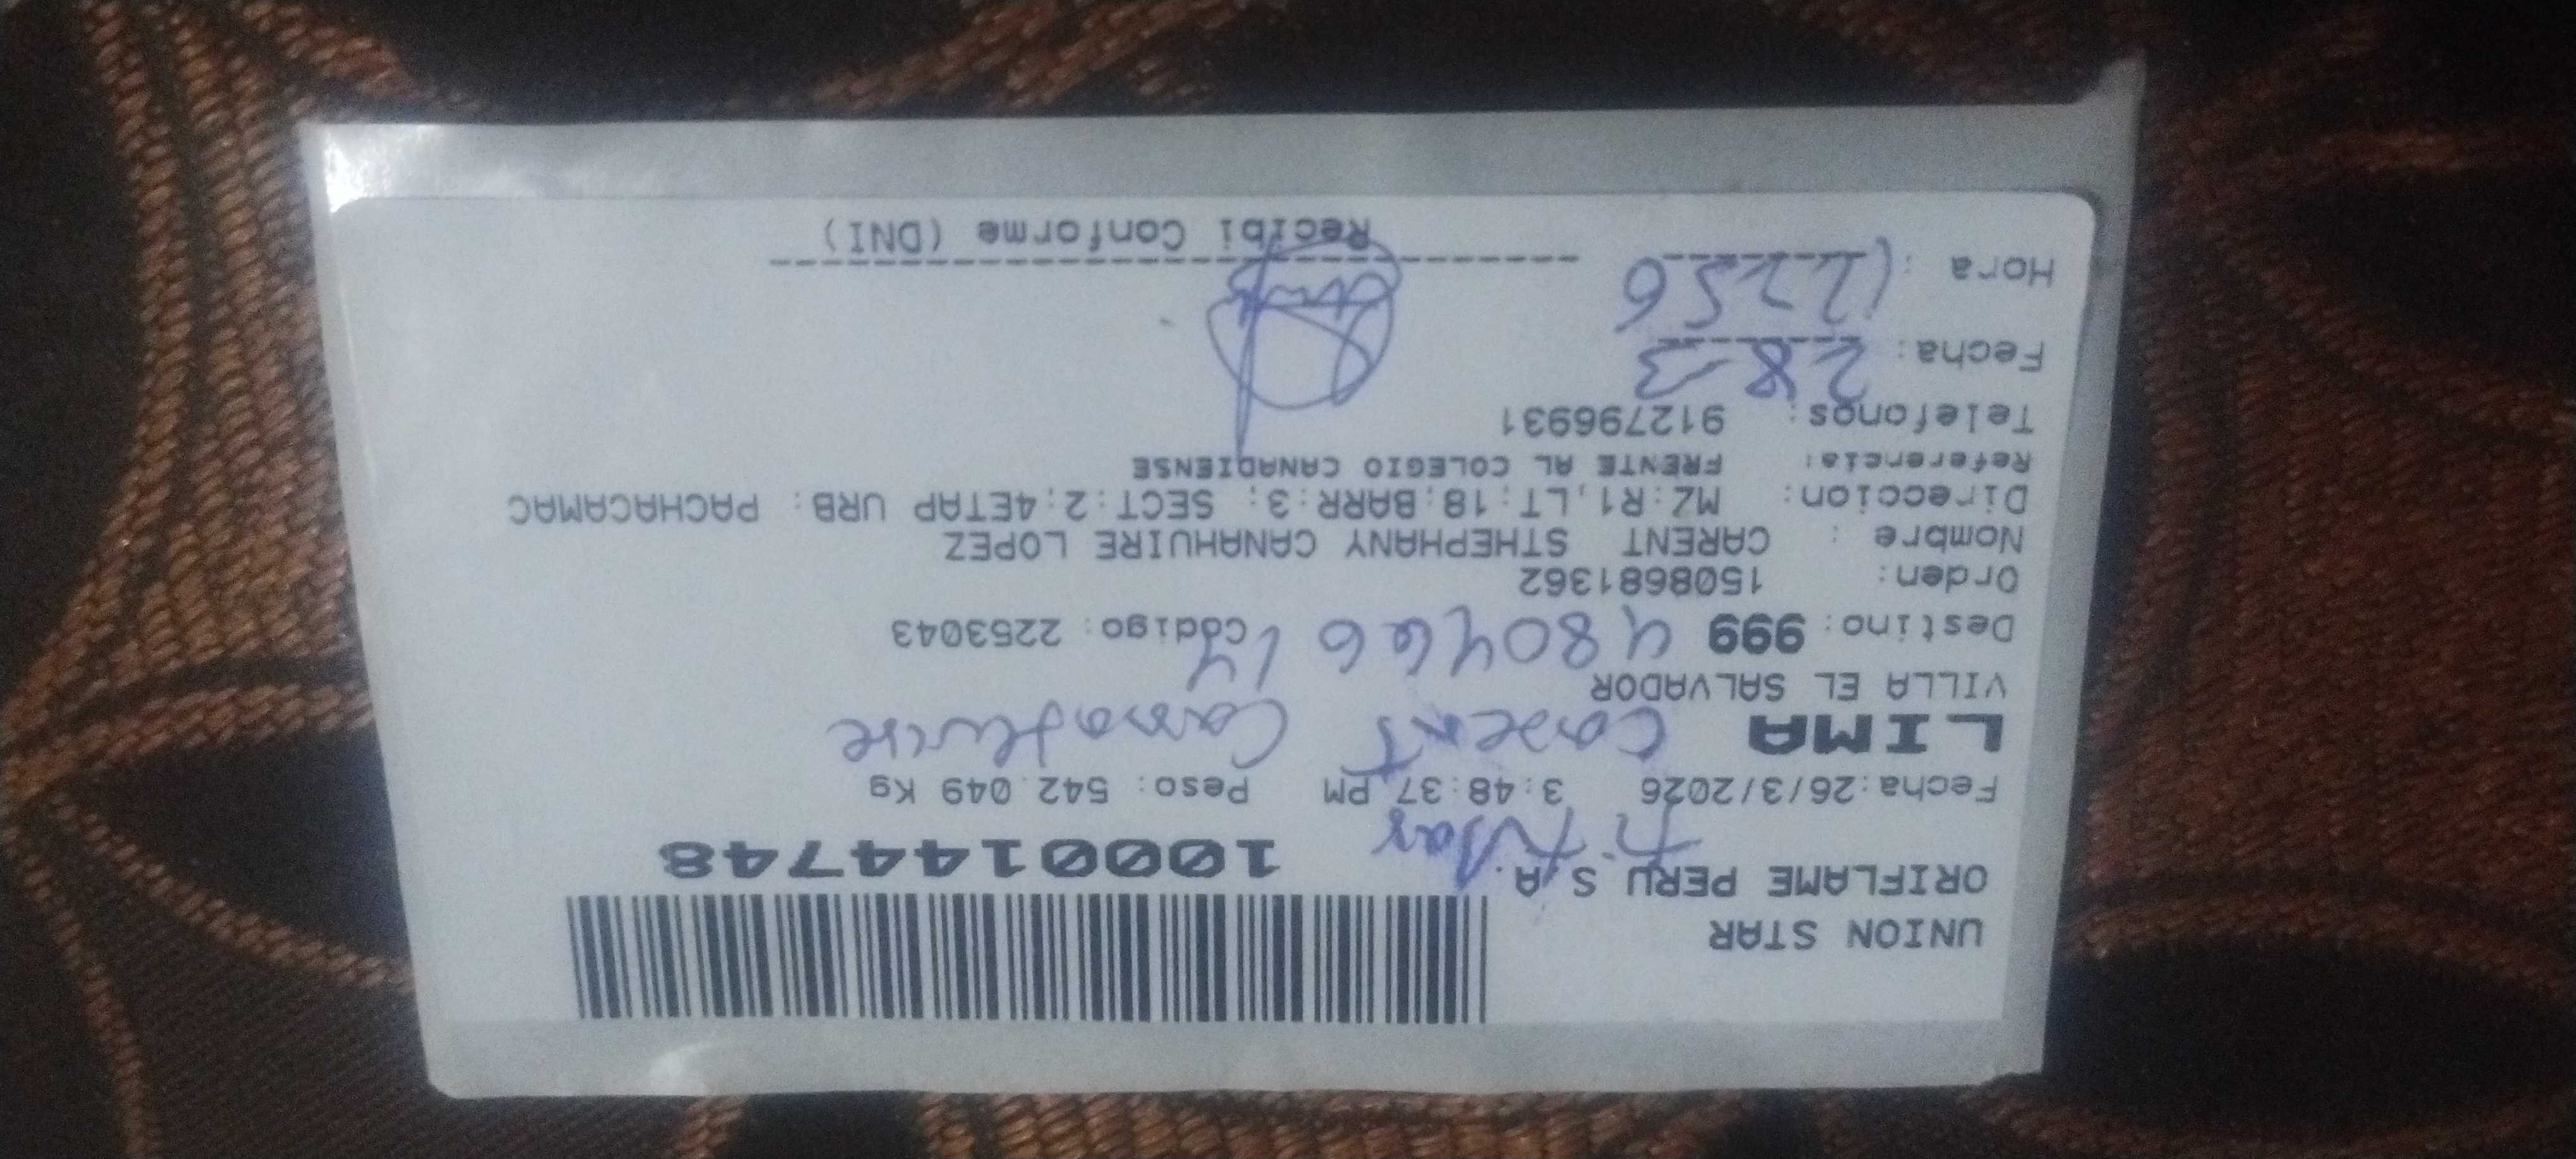 UNION STAR
ORIFLAME PERU S.A.
1000144748
Titular
Fecha:26/3/2026 3:48:37 PM Peso: 542.049 Kg
LIMA Carent Canahuire
VILLA EL SALVADOR
Destino: 999 Codigo: 2253043
Orden: 1508681362
Nombre : CARENT STHEPHANY CANAHUIRE LOPEZ
Direccion: MZ:R1,LT:18:BARR:3; SECT:2;4ETAP URB: PACHACAMAC
Referencia: FRENTE AL COLEGIO CANADIENSE
Telefonos: 912796931
Fecha: 28-3
Hora :
Recibi Conforme (DNI)